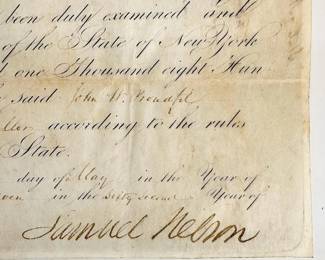 been duly examined and
of the State of New York
one Thousand eight Hun
said John W.
according to the rules
State.
day of May in the Year of
in the sixty second Year of
Samuel Nelson